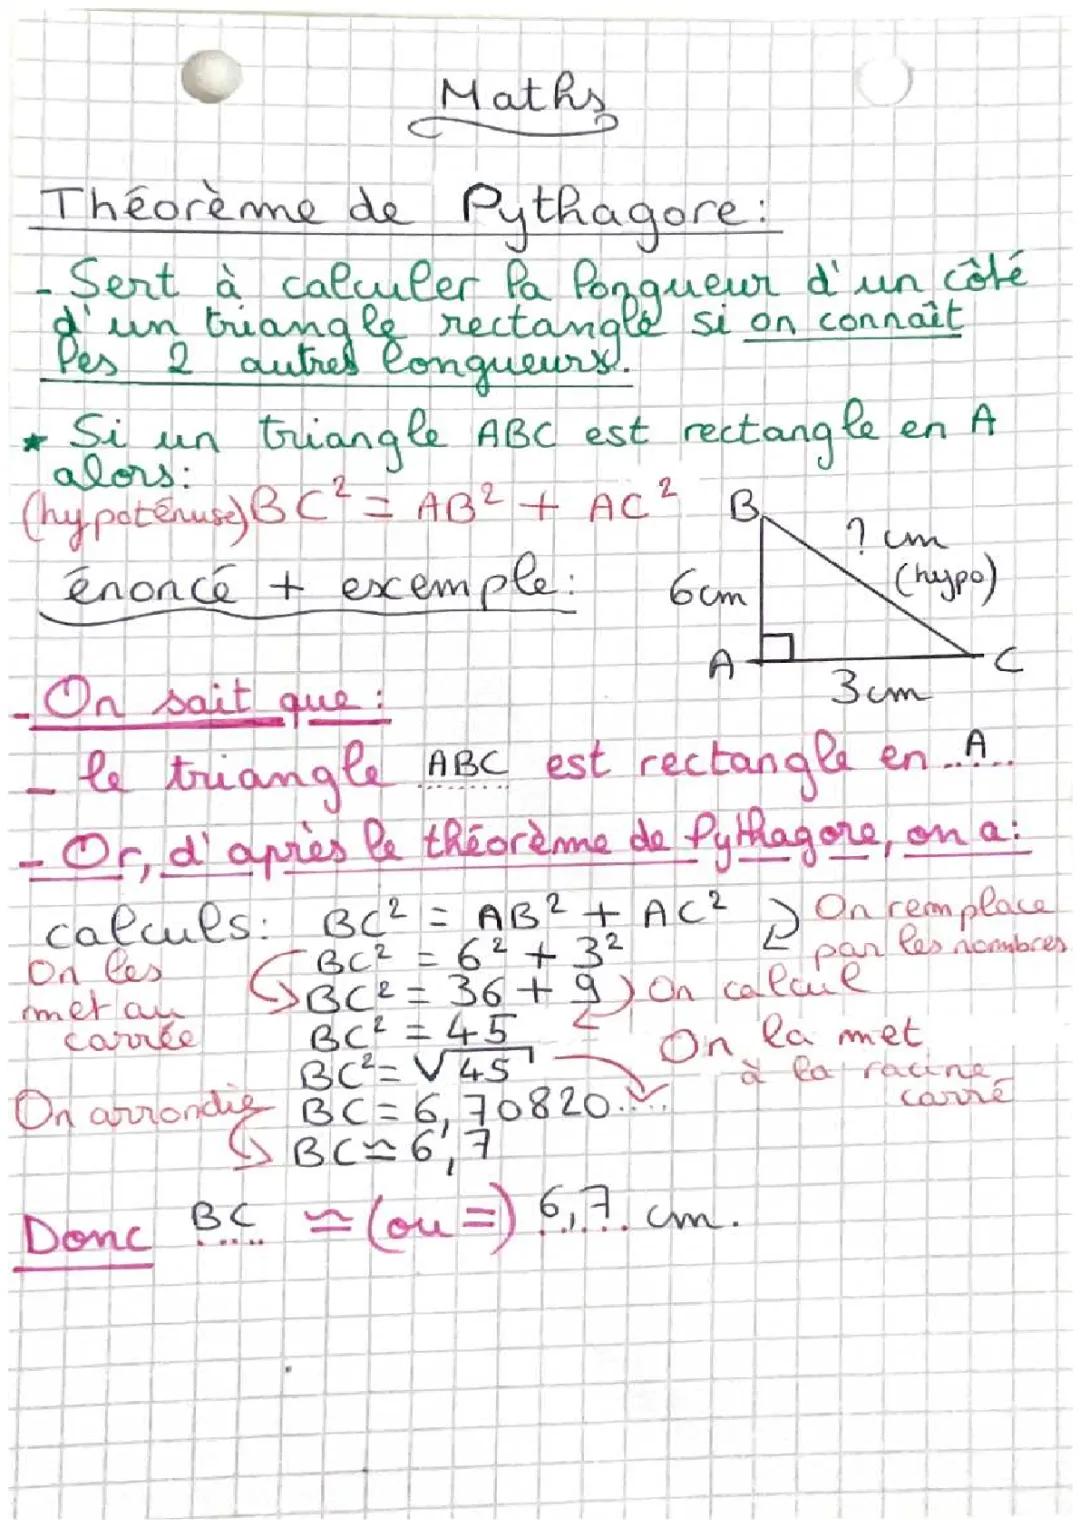 Maths
Théorème de Pythagore:
- Sert à calculer la longueur d'un côté
d'un triangle rectangle si on connaît
les 2 autres longueurs.
* Si un triangle ABC est rectangle en A
alors:
(hypoténuse) BC² = AB² + AC²
énoncé + exemple:
B
? cm
(hypo)
6cm
A
C
3cm
- On sait que:
- le triangle ABC est rectangle en ..A..
- Or, d'après le théorème de Pythagore, on a:
calculs: BC² = AB² + AC²
On remplace
par les nombres
BC² = 6² + 3²
On les
met au
carrée
BC² = 36 + 9
On calcul
BC² = 45
On la met
à la racine
carré
BC² = √45
BC = 6,70820.....
On arrondie
BC ≃ 6,7
Donc BC ≃ (ou =) 6,7 cm.